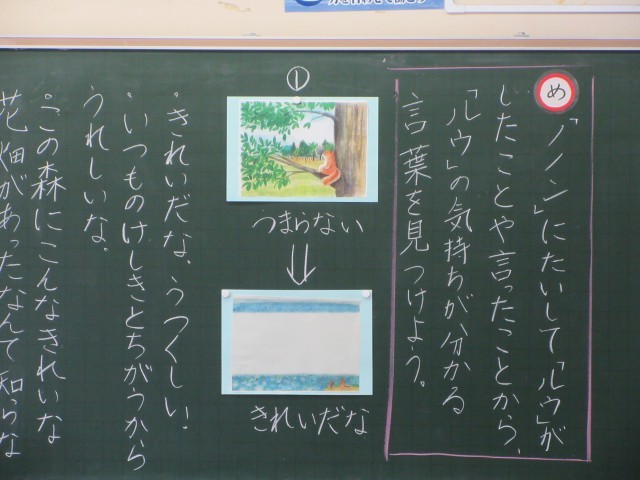 め
「ノノン」にたいして「ルウ」が
したことや言ったことから、
「ルウ」の気持ちが分かる
言葉を見つけよう。
①
つまらない
きれいだな
・きれいだな。うつくしい。
・いつものけしきとちがうから
うれしいな。
・この森にこんなきれいな
花畑があったなんて知らな